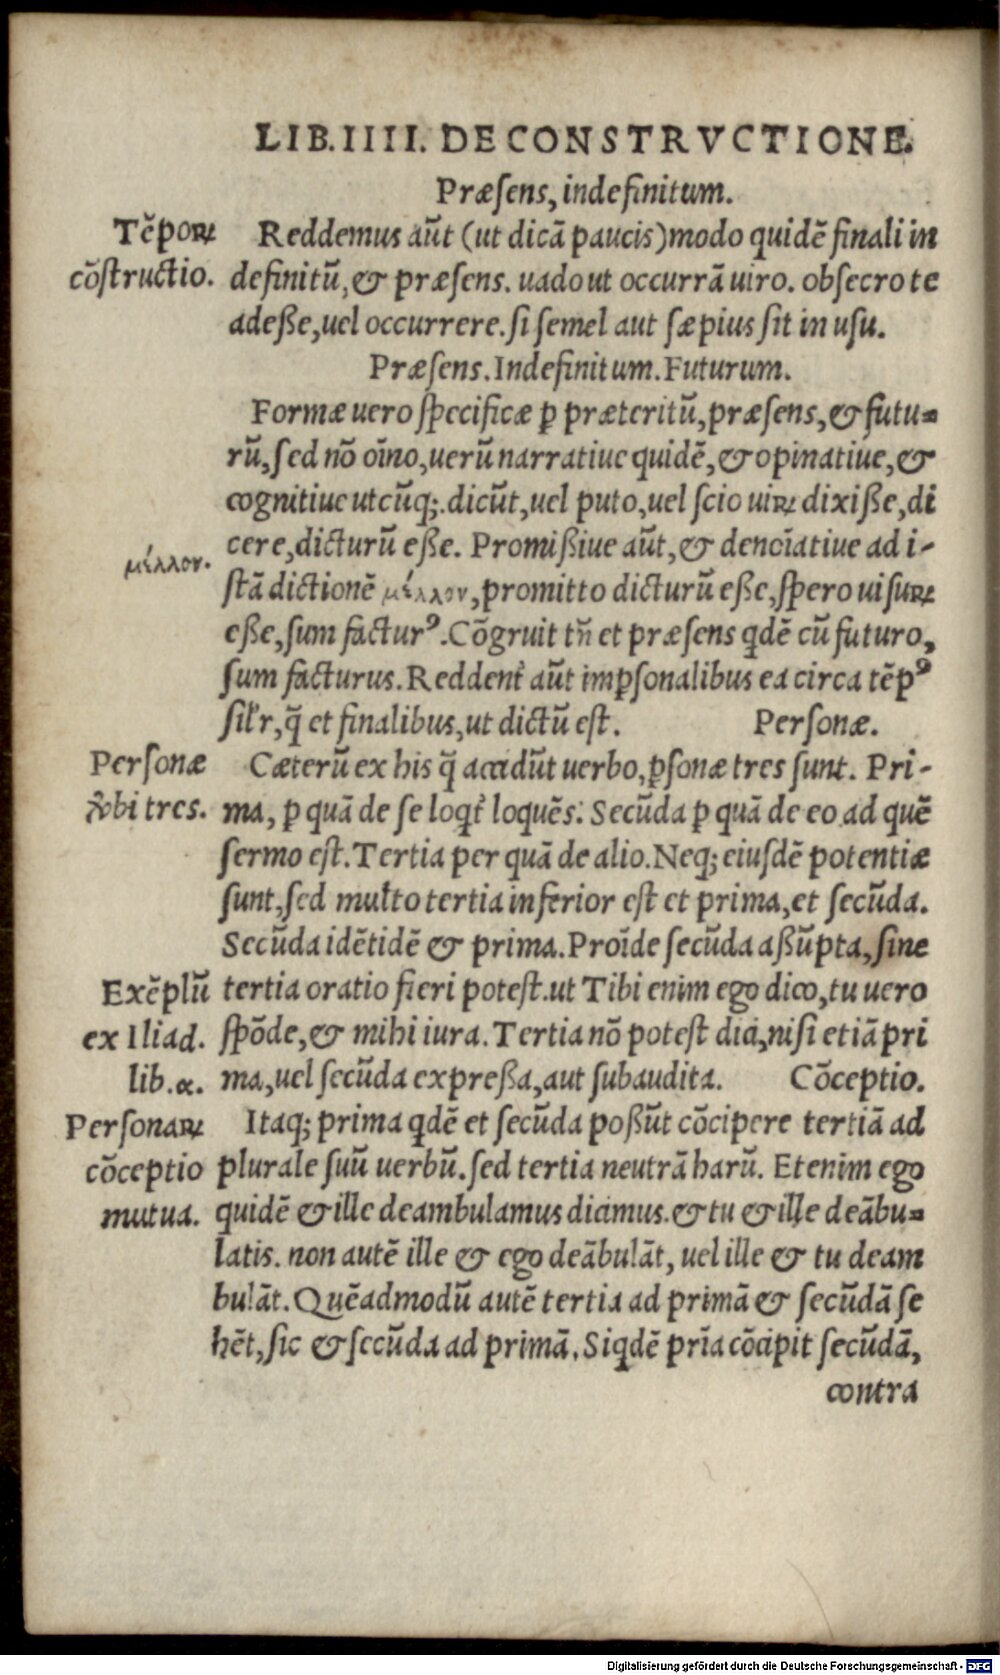 LIB.IIII. DE CONSTRVCTIONE.
Præſens, indefinitum.
Tẽpoꝝ
cõſtructio.
Reddemus aũt (ut dicã paucis) modo quidẽ finali in
definitũ, & præſens. uado ut occurrã uiro. obſecro te
adeſſe, uel occurrere. ſi ſemel aut ſæpius ſit in uſu.
Præſens. Indefinitum. Futurum.
Formæ uero ſpecificæ ꝑ præteritũ, præſens, & futu=
rũ, ſed nõ oĩno, uerũ narratiue quidẽ, & opinatiue, &
cognitiue utcũq;. dicũt, uel puto, uel ſcio uiꝝ dixiſſe, di
cere, dicturũ eſſe. Promiſſiue aũt, & denũciatiue ad i-
μέλλον.
ſtã dictionẽ μέλλον, promitto dicturũ eſſe, ſpero uiſuꝝ
eſſe, ſum facturꝰ. Cõgruit tñ et præſens qdẽ cũ futuro,
ſum facturus. Reddent᷑ aũt imꝑſonalibus ea circa tẽpꝰ
ſiłr, q̃ et finalibus, ut dictũ eſt. Perſonæ.
Perſonæ
v̾bi tres.
Cæterũ ex his q̃ accidũt uerbo, ꝑſonæ tres ſunt. Pri-
ma, ꝑ quã de ſe loqt᷑ loquẽs: Secũda ꝑ quã de eo ad quẽ
ſermo eſt. Tertia per quã de alio. Neq; eiuſdẽ potentiæ
ſunt, ſed multo tertia inferior eſt et prima, et ſecũda.
Secũda idẽtidẽ & prima. Proĩde ſecũda aſſũpta, ſine
Exẽplũ
ex Iliad.
lib. α.
tertia oratio fieri poteſt. ut Tibi enim ego dico, tu uero
ſpõde, & mihi iura. Tertia nõ poteſt dici, niſi etiã pri
ma, uel ſecũda expreſſa, aut ſubaudita. Cõceptio.
Perſonaꝝ
cõceptio
mutua.
Itaq; prima qdẽ et ſecũda poſſũt cõcipere tertiã ad
plurale ſuũ uerbũ. ſed tertia neutrã harũ. Etenim ego
quidẽ & ille deambulamus dicimus. & tu & ille deãbu=
latis. non autẽ ille & ego deãbulãt, uel ille & tu deam
bulãt. Quẽadmodũ autẽ tertia ad primã & ſecũdã ſe
hẽt, ſic & ſecũda ad primã. Siqdẽ pria cõcipit ſecũdã,
contra
Digitalisierung gefördert durch die Deutsche Forschungsgemeinschaft - DFG